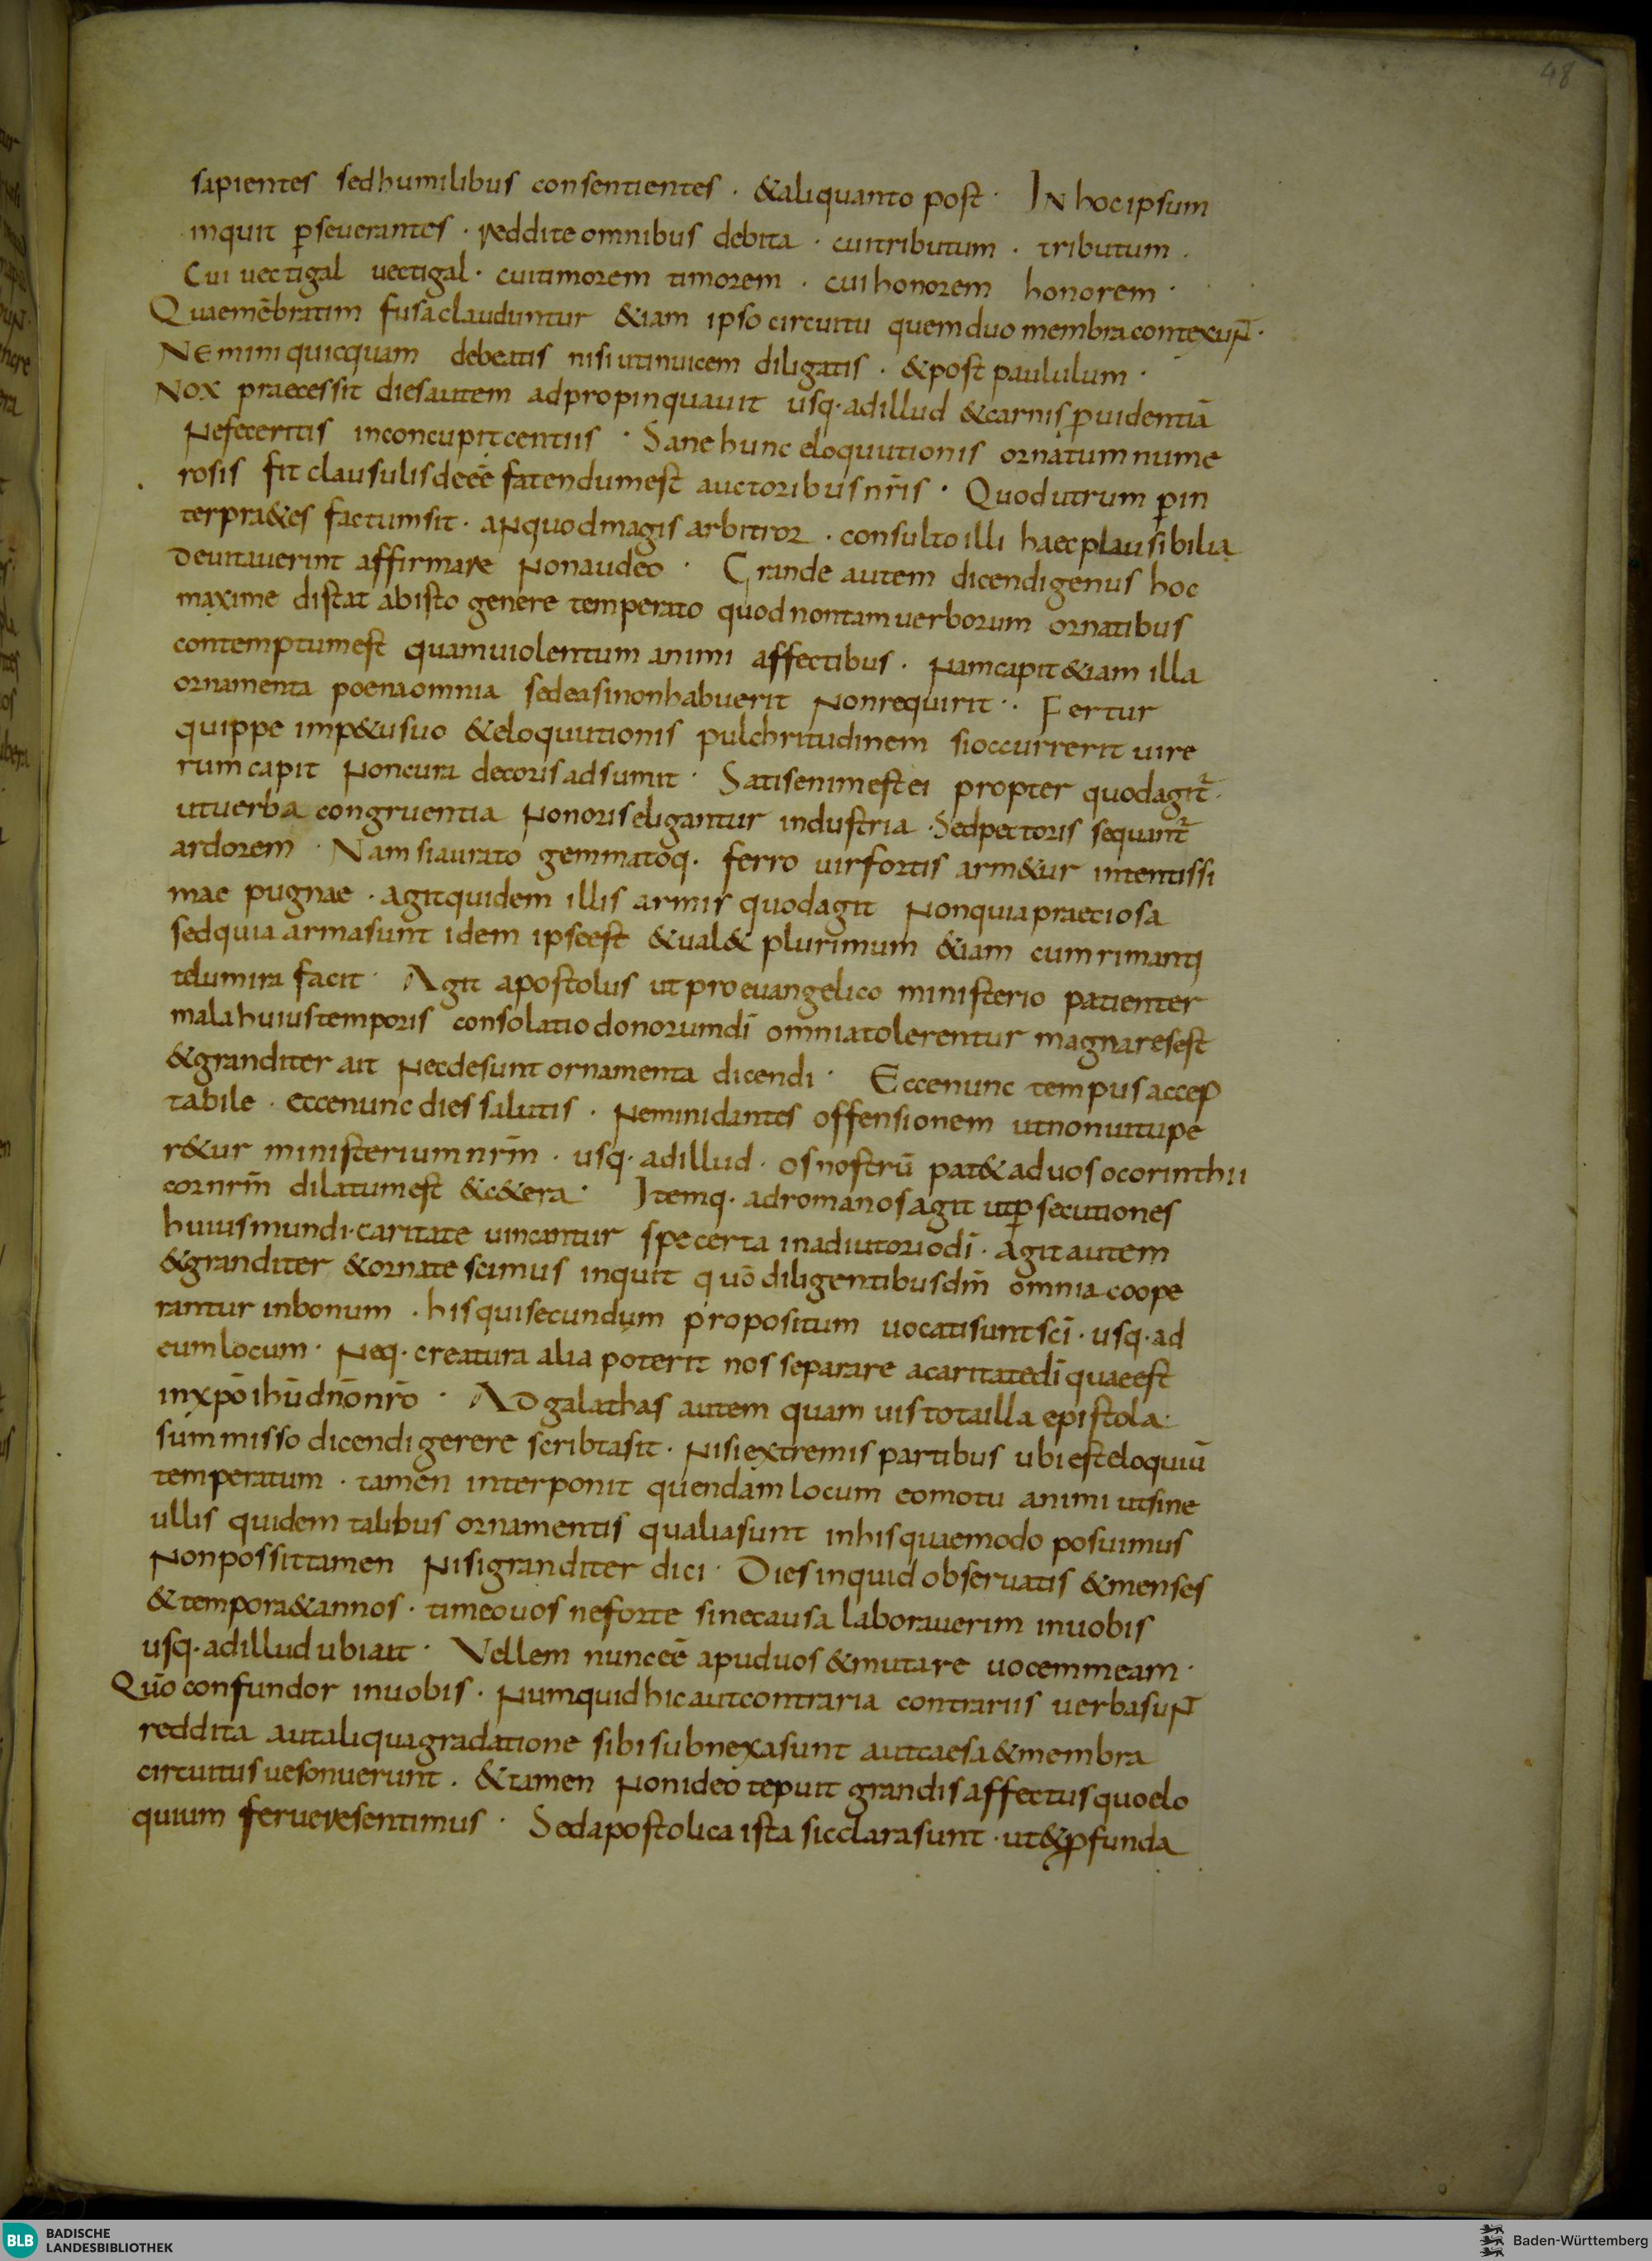 48
sapientes sedhumilibus consentientes · &aliquanto post · IN hocipsum
inquit p̄seuerantes · reddite omnibus debita · cuitributum · tributum ·
Cui uectigal uectigal · cuitimorem timorem · cui honorem honorem ·
Quaemēbratim fusaclauduntur &iam ipso circuitu quemduo membracontexuNT̄ ·
NEmini quicquam debeatis nisi utinuicem diligatis · &post paululum ·
Nox praecessit diesautem adpropinquauit usq· adillud &carnis p̲uidentiā
Nefeceritis inconcupiscentiis · Sane hunc eloquutionis ornatum nume
rosis fit clausulis deeē fatendumest auctoribus nr̄is · Quodutrum p̄in
terpra&es factumsit · aNquodmagis arbitror · consulto illi haecplausibilia
Deuitauerint affirmare Nonaudeo · Grande autem dicendigenus hoc
maxime distat abisto genere temperato quodnontamuerborum ornatibus
contemptumest quamuiolentum animi affectibus · Namcapit &iam illa
ornamenta poenaomnia sedeasinonhabuerit Nonrequirit ·· Fertur
quippe imp&usuo &eloquutionis pulchritudinem sioccurrerit uire
rum capit Noncura decorisadsumit · Satisenimestei propter quodagit᷑ ·
utuerba congruentia Nonoriseligantur industria · Sedpectoris sequant᷑
ardorem · Nam siaurato gemmatoq· ferro uirfortis arm&ur intentissi
mae pugnae · agitquidem illis armis quodagit Nonquiapraeciosa
sedquia armasunt idem ipseest &ual& plurimum &iam cumrimanti
telumira facit · Agit apostolus utproeuangelico ministerio patienter
mala huiustemporis consolatio donorumdī omniatolerentur magnaresest
&granditer ait Necdesunt ornamenta dicendi · Eccenunc tempus accep
tabile · eccenunc dies salutis · Neminidantes offensionem utnonuitupe
r&ur ministeriumnrm̄ · usq· adillud · osnostrū pat& aduosocorinthii
cornrm̄ dilatumest &c&era · Itemq· adromanosagit utp̄secutiones
huiusmundi · caritate uincantur specerta inadiutoriodī · agit autem
&granditer &ornate scimus inquit quō diligentibusdm̄ omnia coope
rantur inbonum · his quisecundum propositum uocatisuntscī · usq· ad
eumlocum · Neq· creatura alia poterit nos separare acaritatedī quaeest
inxpōihūdnōnrō · ADgalathas autem quam uistotailla epistola ·
summisso dicendi gerere scribtasit · Nisiextremis partibus ubiesteloquiū
temperatum · tamen interponit quendam locum eomotu animi utsine
ullis quidem talibus ornamentis qualiasunt inhisquaemodo posuimus
Nonpossittamen Nisigranditer dici · Diesinquid obseruatis &menses
&tempora&annos · timeouos neforte sinecausa laborauerim inuobis
usq· adillud ubiait · Vellem nunceē apuduos &mutare uocemmeam ·
Quō confundor inuobis · Numquid hicautcontraria contrariis uerbasuNT
reddita autaliquagradatione sibisubnexasunt autcaesa&membra
circuitusuesonuerunt · &tamen Nonideo tepuit grandisaffectusquoelo
quium feruere sentimus · Sedapostolica ista sicclarasunt · ut&p̲funda
BLB BADISCHE
LANDESBIBLIOTHEK
Baden-Württemberg